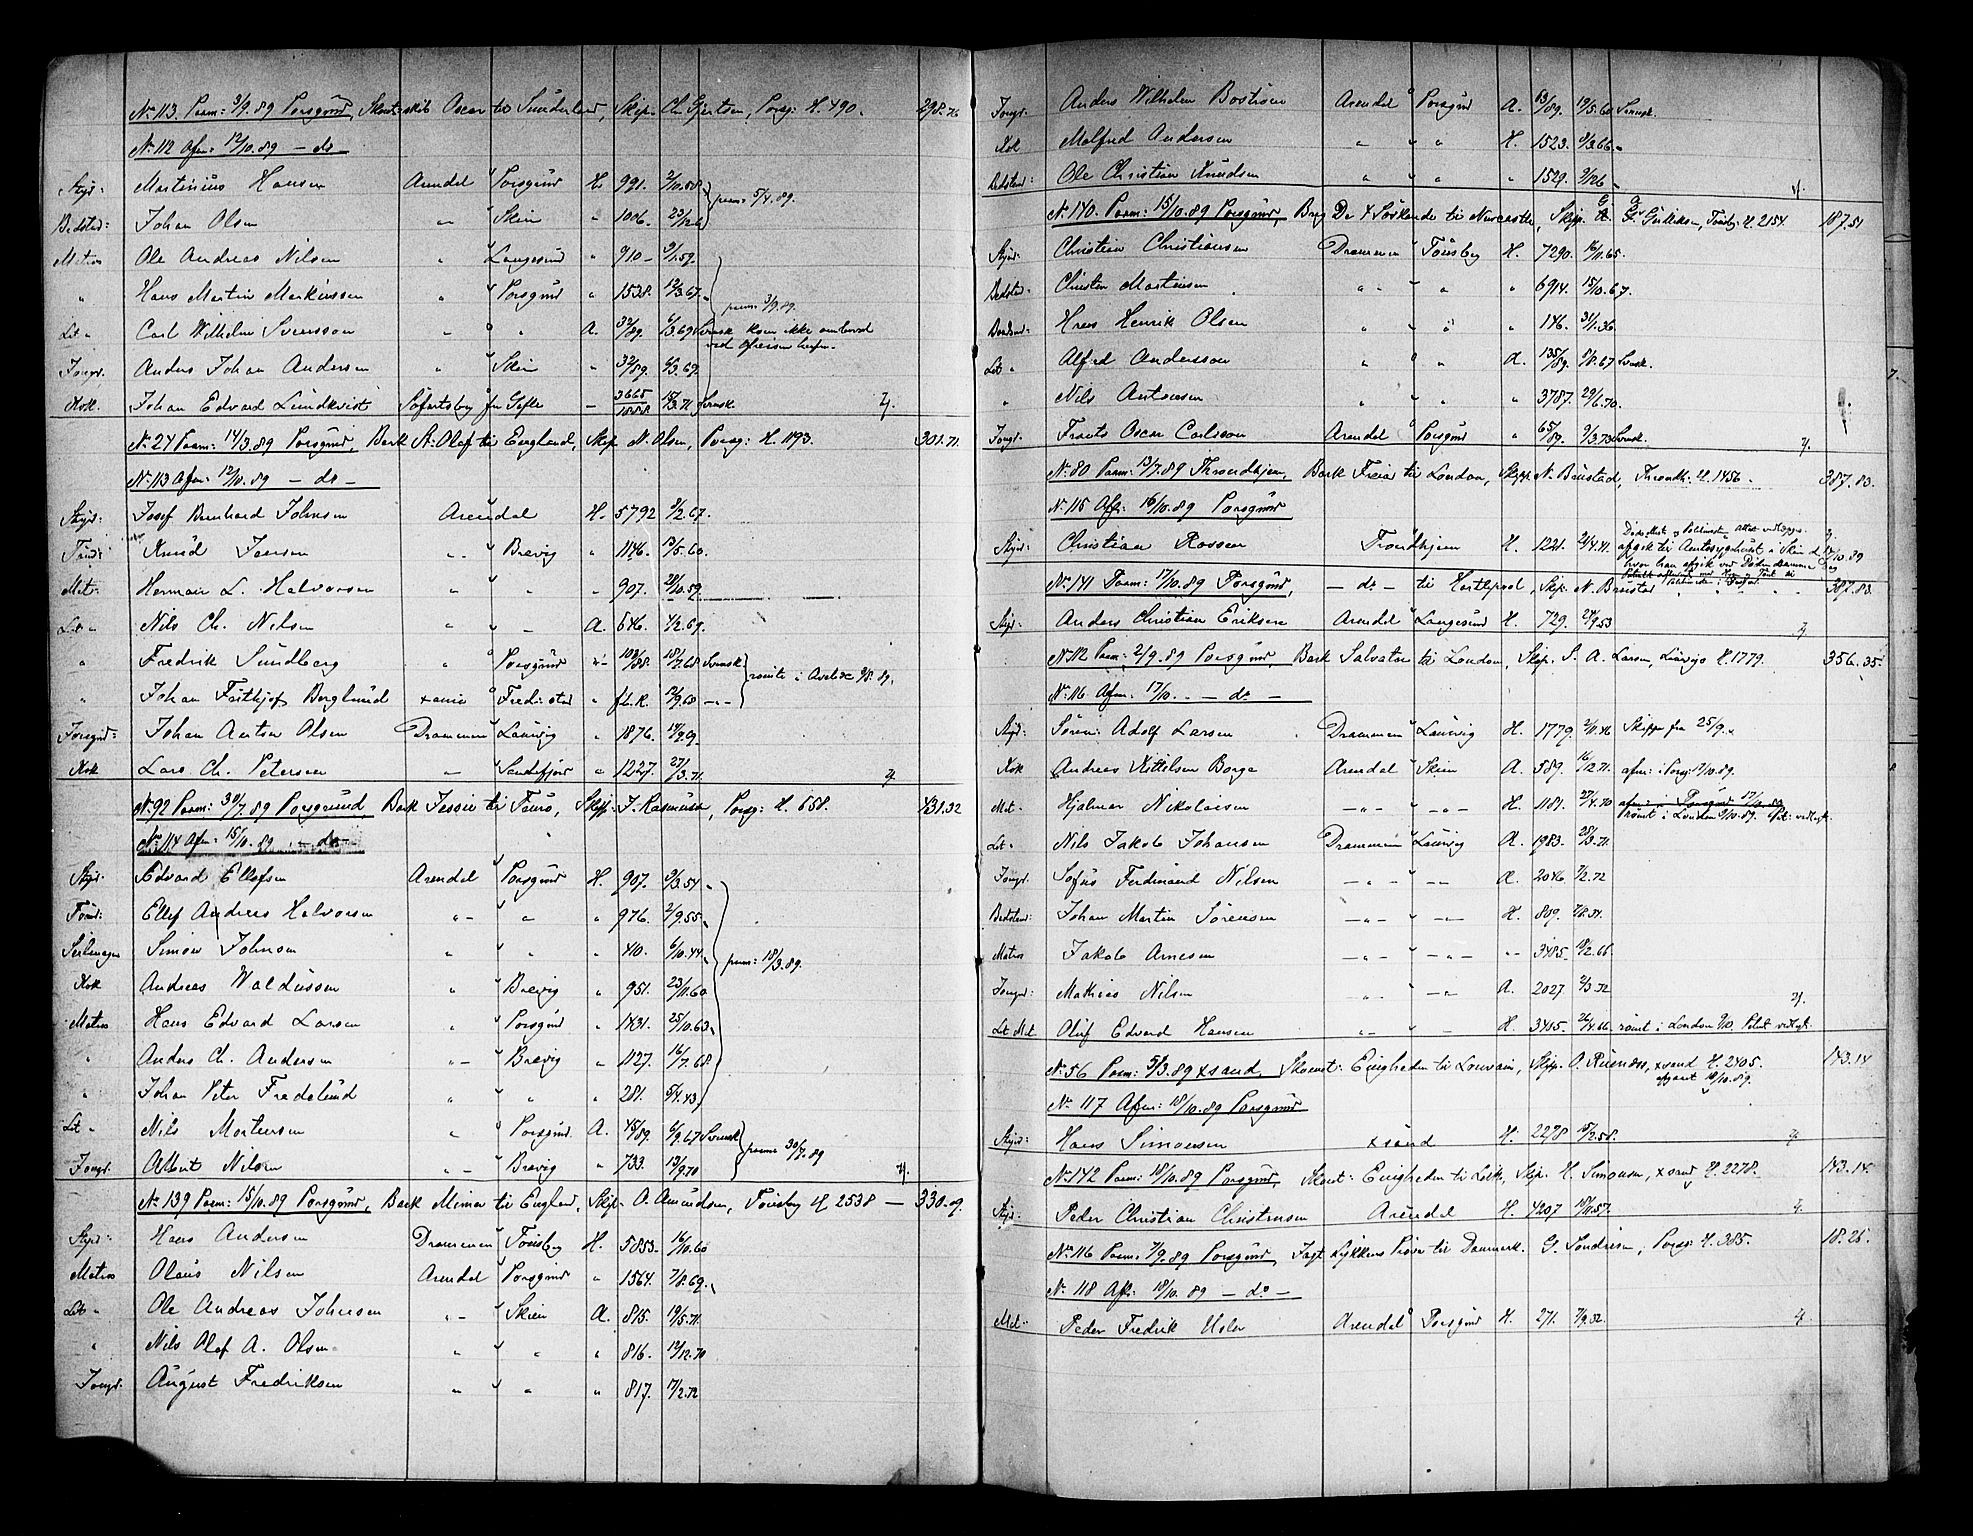 No 113 Paam: 3/9.89 Porsgrund, Skonskib Oscar til Sunderland, Skip. Ch. Gjertsen, Porsg: H. 490. 298.76
No 112 Afm: 12/10.89 - do -
Styr: Martinius Hansen Arendal Porsgrund H. 991. 2/10.58 paam: 5/4.89.
Bedstd: Johan Olsen " Skien " 1006. 23/12.6
Matros Ole Andreas Nilsen " Langesund " 910 - 9/1.59.
" Hans Martin Markussen " Porsgrund " 1538. 12/3.67. paam: 3/9.89.
Let " Carl Wilhelm Svensson " " A. 32/89. 6/3.69 Svensk kom ikke ombord ved Afreisen herfra.
Jungm. Anders Johan Andersen " Skien " 32/89. 6/3.69.
Kok. Johan Edvard Lundkvist fra Gefle - 3665 Svensk.
No 24 Paam: 14/3.89 Porsgrund, Bark St. Olaf til England, Skip. N. Olsen, Porsg: H. 1193. 301.71.
No 113 Afm: 12/10.89 - do -
Styr: Josef Bernhard Johnsen Arendal H. 5792 2/2.67.
Tømd: Knud Jensen " Brevig " 1146. 13/5.60.
Mat: Herman L. Halvorsen " " " 907. 20/10.59.
Let " Nils Ch. Nilsen " " A. 646. 4/2.69.
" Fredrik Sundberg " Porsgrund " 102/88. 18/7.68 Svensk rømte i
" Johan Frithjof Berglund xania Fredr:stad " f.b.R. 12/9.68 - " -
Jungmd: Johan Anton Olsen Drammen Laurvig " 1876. 14/9.69.
Kok Lars Ch. Petersen " Sandefjord " 1227. 27/3.71.
No 92 Paam: 30/7.89 Porsgrund, Bark Jessie til Truro, Skip: J. Rasmussen, Porsg: H. 658. 431.32
No 114 Afm: 15/10.89 - do -
Styr. Edvard Ellefsen Arendal Porsgrund H. 907. 9/3.54.
Tømd: Ellef Andreas Halvorsen " " " 976. 2/9.55.
Seilmager Simon Johnsen " " " 410. 6/10.44. paam: 18/3.89.
Kok Andreas Waldussen " Brevig " 951. 23/11.60
Matros Hans Edvard Larsen " Porsgrund " 1431. 25/10.63.
" Anders Ch. Andersen " Brevig " 1127. 16/7.68.
" Johan Peter Fredslund " " " 281. 5/4.43.
Let " Nils Mortensen " Porsgrund. A. 45/89. 6/9.67 Svensk paam: 30/7.89
Jungm. Albert Nilsen " Brevig " 733. 13/9.70
No 139 Paam: 15/10.89 Porsgrund, Bark Mimer til England, Skip. O. Amundsen, Tønsberg H 2538 - 330.09.
Styr: Hans Andersen Drammen Tønsberg H. 5853. 16/10.60
Matros Olaus Nilsen Arendal Porsgrund " 1564. 7/8.69.
Let " Ole Andreas Johnsen " Skien A. 815. 19/5.71.
" Nils Olaf A. Olsen " " " 816. 12/12.70
Jungm. August Fredriksen " " " 817. 17/2.72
Jungm. Anders Wilhelm Boström Arendal Porsgrund A. 63/89. 19/5.60 Svensk.
Kok Malfred Andersen " " H. 1523. 3/3.66.
Bedstmd: Ole Christian Knudsen " " " 1529.
No 140. Paam: 15/10.89 Porsgrund, Brig De 4 Søskende til Newcastle, Skip. G. Gulliksen, Tønsbg: H. 2154. 187.51
Styrm: Christian Christiansen Drammen Tønsberg H. 7290. 16/11.65.
Bedstmd: Christen Martinsen " " " 6914. 15/10.67.
Hans Henrik Olsen " " " 146. 31/1.36.
Let " Alfred Andersson " " A. 135/89. 5/8.67 Svensk.
" Nils Antonsen " " " 3787. 29/6.70.
Jungm. Frants Oscar Carlsson Arendal Porsgrund " 65/89. 9/3.73 Svensk.
No 80 Paam: 13/7.89 Throndhjem, Bark Freia til London, Skip. N. Brustad, Throndh: H. 1456. 387.83.
No 115 Afm: 16/10.89 Porsgrund
Styrm: Christian Rossen Trondhjem H. 1221. 21/4.41. afgik til Amtssygehuset i Skien
No 141 Paam: 17/10.89 Porsgrund, - do - til Hartlepool, Skip. N. Brustad 387.83.
Styr: Anders Christian Eriksen Arendal Langesund H. 729. 24/9.53
No 112 Paam: 2/9.89 Porsgrund Bark Salvator til London, Skip. S. A. Larsen, Laurvig H. 1779. 356.35.
No 116 Afm. 17/10. - do -
Styr: Søren Adolf Larsen Drammen Laurvig H. 1779. 2/11.46 Skipper fra 25/9.
Kok Andreas Kittilsen Borge Arendal Skien A. 589. 16/12.71. afm: i Porsg: 17/10.89.
Mat. Hjalmar Nikolaisen - " - - " - H. 1181. 27/4.70 afm: i Porsgrund 17/10.89 Rømt i London 9/10.89.
Let " Nils Jakob Johansen Drammen Laurvig A. 1983. 25/3.71.
Jungm. Sofus Ferdinand Nilsen - " - - " - A. 2046. 7/2.72
Bedstmd: Johan Martin Sørensen - " - - " - H. 809. 7/8.31.
Matros Jakob Arnesen - " - - " - " 3485. 10/2.66.
Jungm. Mathias Nilsen " - " - A. 2027 2/3.72
Let Mat. Oluf Edvard Hansen " - " - H. 3405. 26/4.66. rømt i London 9/10.
No 56 Paam: 5/3.89 xsand, Skonst: Enigheden til Louvain, Skip. O. Knudsen, xsand H. 2405. 143.14
afgaaet 18/10.89.
No 117 Afm: 18/10.89 Porsgrund
Styrm: Hans Simonsen xsand H. 2278 15/2.58.
No 142 Paam: 18/10.89 Porsgrund, Skonst: Enigheden til Leith, Skip. H. Simonsen, xsand H. 2278. 143.14.
Styr: Peder Christian Christensen Arendal H. 4207 18/11.57.
No 116 Paam: 7/9.89 Porsgrund, Jagt Lykkens Prøve til Danmark. G. Sondresen, Porsg: H. 385. 18.25.
No 118 Afm: 18/10.89 - do -
Mat. Peder Fredrik Isler Arendal Porsgrund H. 271. 7/9.32.